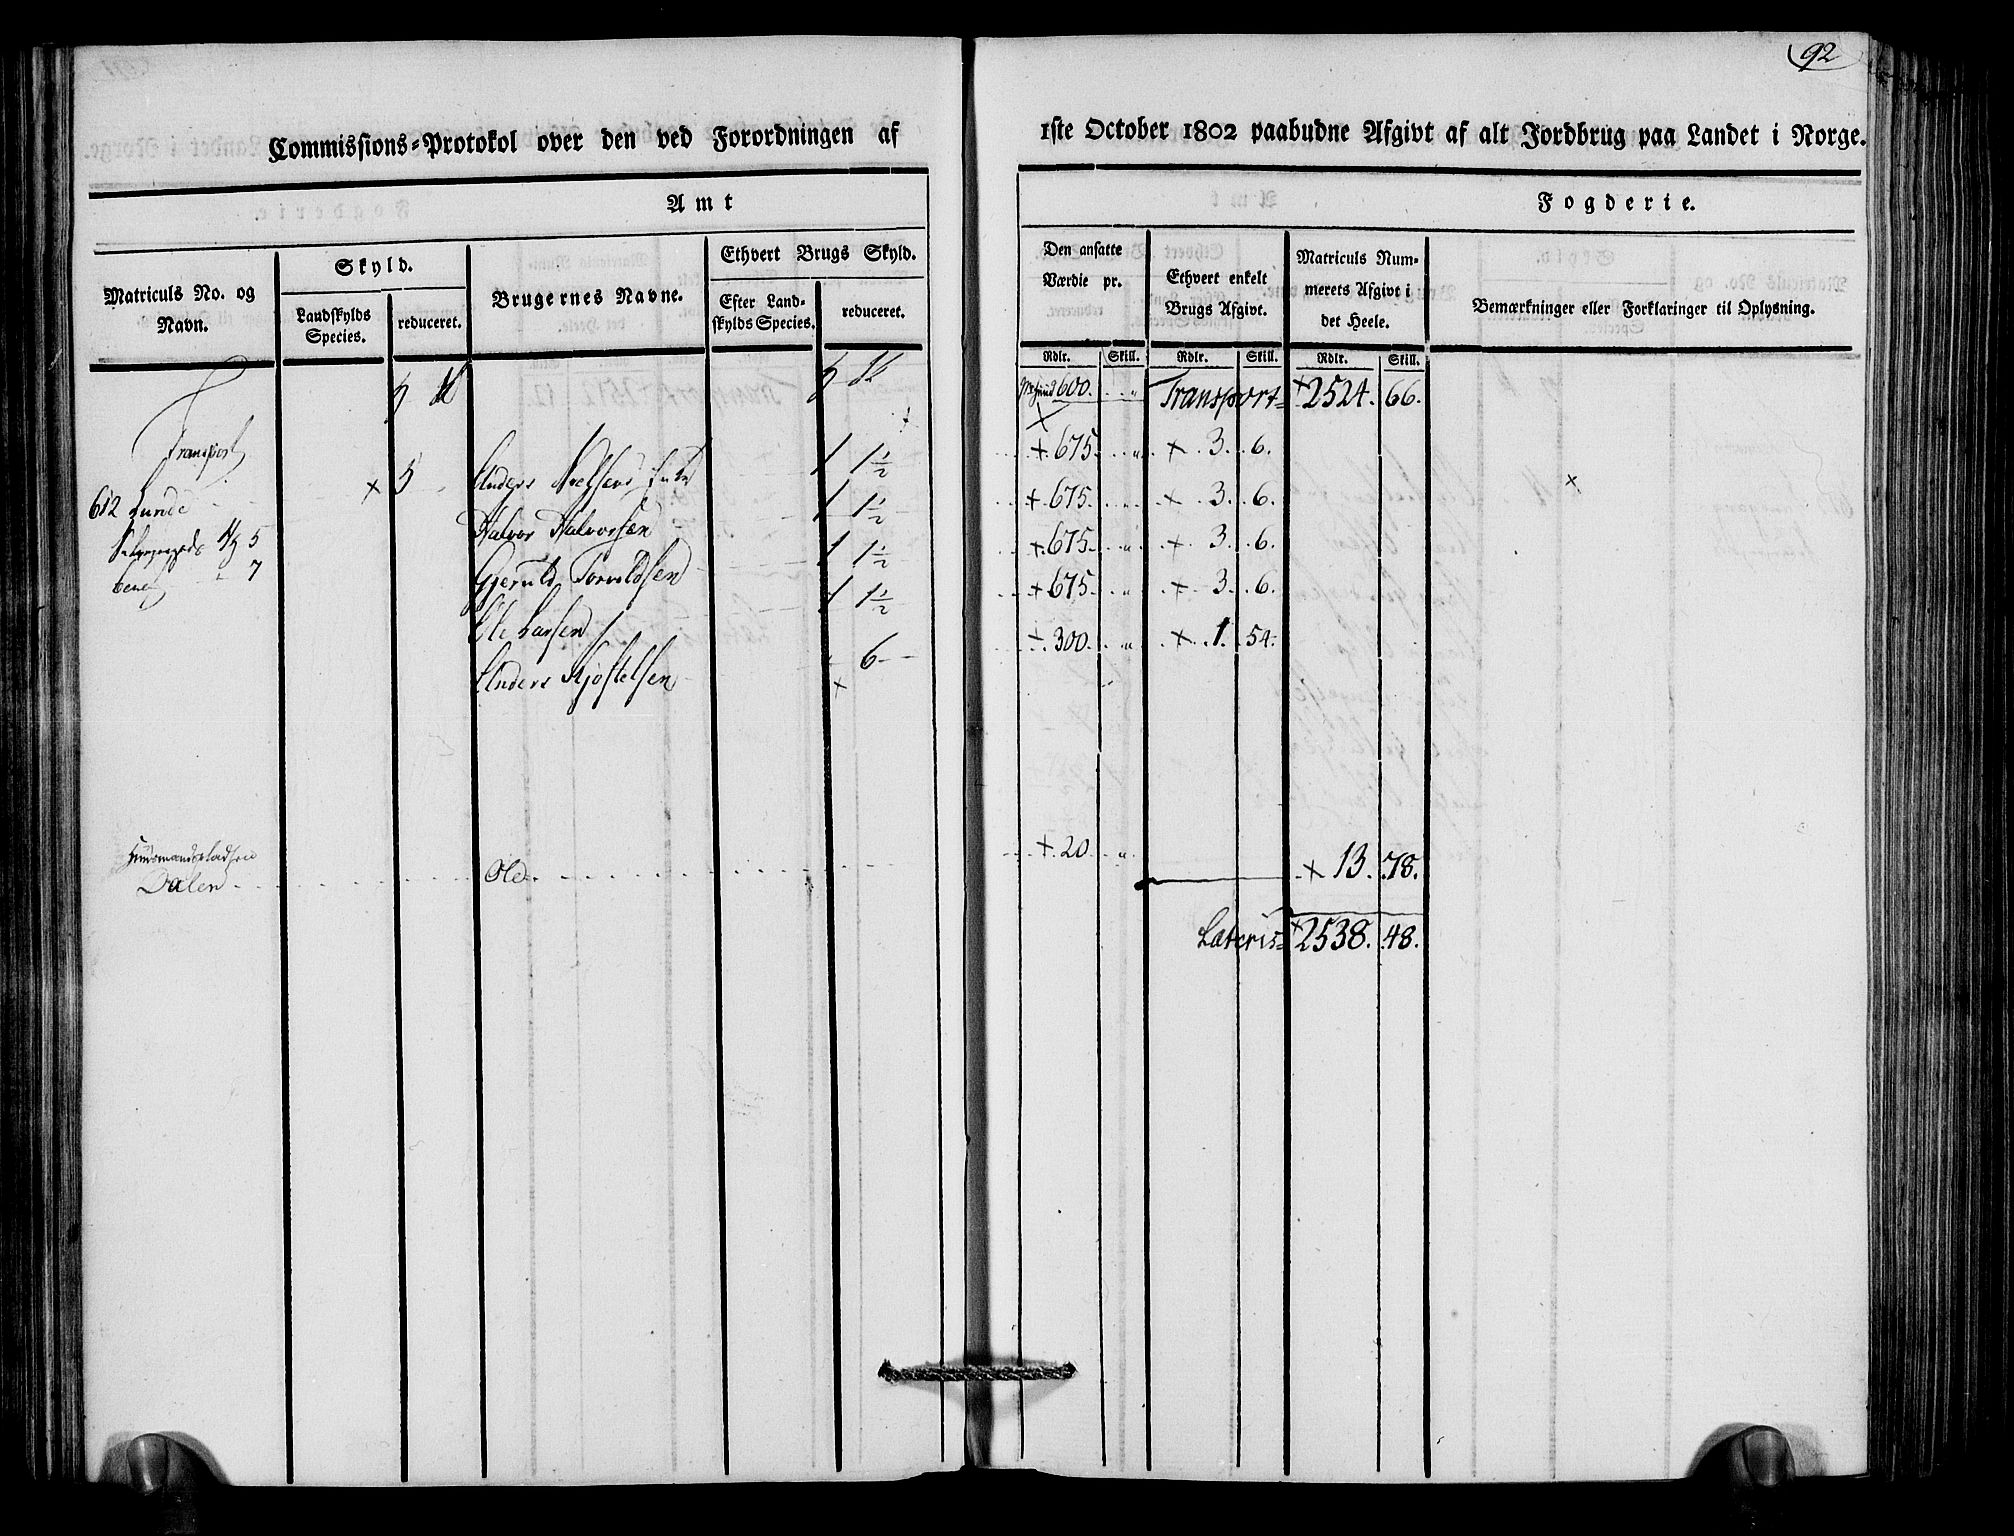 92
Commissions-Protokol over den ved Forordningen af
1ste October 1802 paabudne Afgivt af alt Jordbrug paa Landet i Norge.
Amt
Fogderie.
Matriculs No. og Navn.
Skyld.
Landskylds Species.
reduceret.
Brugernes Navne.
Ethvert Brugs Skyld.
Efter Landskylds Species.
reduceret.
Den ansatte Værdie pr.
Ethvert enkelt Brugs Afgivt.
Matriculs Nummerets Afgivt i det Heele.
Bemærkninger eller Forklaringer til Oplysning.
Rdlr. Skill. Rdlr. Skill. Rdlr. Skill.
Transport
600. " Transport = + 2524. 66.
612 Lunde + 5 Anders 1 1½ + 675. " + 3. 6.
5 Halvor Halvorsen 1 1½ + 675. " + 3. 6.
7 Gjeruld Torvildsen 1 1½ + 675. " + 3. 6.
Ole Larsen 1 1½ + 675. " + 3. 6.
Anders Kjøstelsen 6 + 300. " + 1. 54.
Huusmandspladsen
Dalen Ole + 20 " + 13. 78.
Lateris = + 2538. 48.